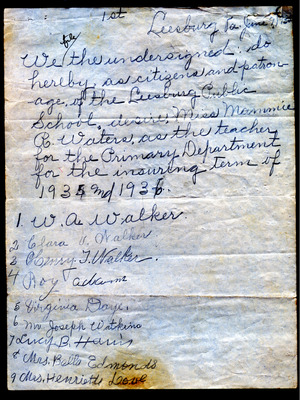 1st
Leesburg
We the undersigned do
hereby, as citizens and patron-
age, of the Leesburg Public
School, desire, Miss Mammie
B. Waters, as the teacher
for the Primary Department
for the insuring term of
1935 and 1936.
1. W. A. Walker.
2 Clara A. Walker
3 Henry T. Walker.
4 Roy
5 Virginia Daye,
6 Mr. Joseph Watkins
7 Lucy B. Harris
8 Mrs. Belle Edmonds
9 Mrs. Henrietta Love